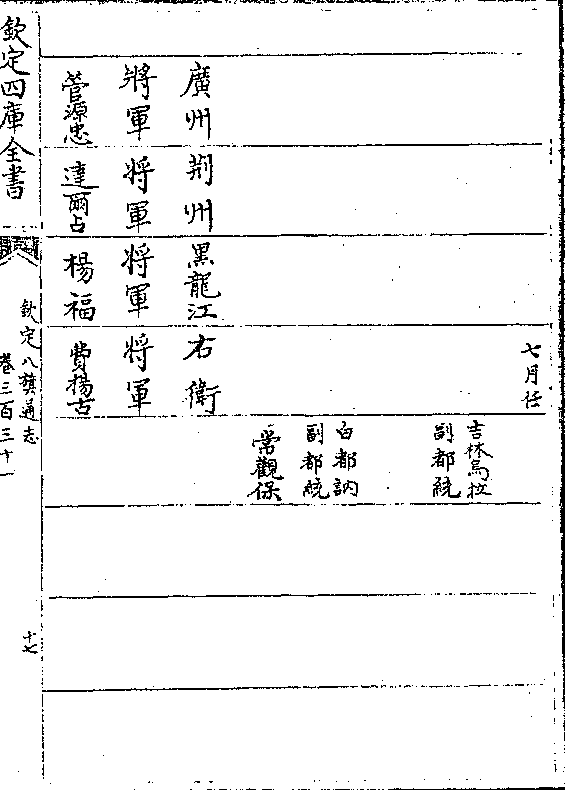 廣州
將軍
管源忠
荆州
將軍
達爾占
黑龍江
將軍
楊福
七月任
右衛
將軍
費揚古
吉林烏拉
副都統
白都訥
副都統
常觀保
欽定四庫全書
欽定八旗通志
卷三百三十一
十七